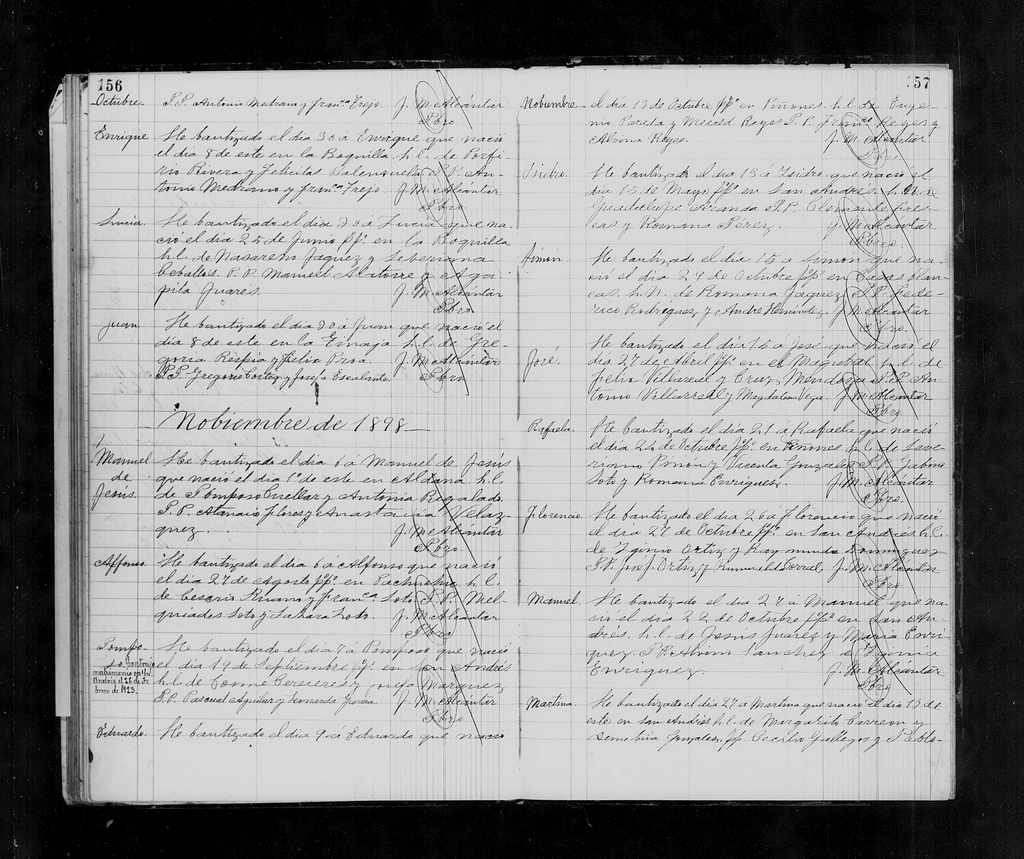 156
Octubre. P.P. Antonio Medrano y Franca Trejo. J. M. Alcántar
Pbro.
Enrique. He bautizado el día 30 á Enrique que nació
el día 8 de este en la Boquilla h.l. de Porfi-
rio Rivera y Jesucita Valenzuela P.P. An-
tonio Medrano y Franca Trejo. J. M. Alcántar
Pbro.
Lucia. He bautizado el día 30 á Lucia que na-
ció el día 25 de Junio ppo. en la Boquilla
h.l. de Nazareth Jaquez y Seberiana
Ceballos. P.P. Manuel Alatorre y Aga-
pita Juares. J. M. Alcántar
Pbro.
Juan. He bautizado el día 30 á Juan que nació el
día 8 de este en la h.l. de Gre-
goria y
P.P. Gregorio Cortez y Josefa Escalante. J. M. Alcántar
Pbro.
Nobiembre de 1898
Manuel de Jesus. He bautizado el día 6 á Manuel de Jesús
que nació el día 1o de este en Aldana h.l.
de Pomposo Cuellar y Antonia Regalado.
P.P. Atanacio Flores y Anastacia Velaz-
quez. J. M. Alcántar
Pbro.
Alfonso. He bautizado el día 6 á Alfonso que nació
el día 27 de Agosto ppo. en h.l.
de Cesario y Franca Soto P.P. Mel-
quiades Soto y Soto. J. M. Alcántar
Pbro.
Pompo-
so. Contrajo
matrimonio en Sn.
Andrés el 26 de Fe-
brero de 1923.
He bautizado el día 7 á Pomposo que nació
el día 19 de Septiembre ppo. en San Andrés
h.l. de y Marquez
P.P. Pascual Aguilar y J. M. Alcántar
Pbro.
Eduardo. He bautizado el día 9 á Eduardo que nació
157
Nobiembre el día 13 de Octubre ppo. en Piñones h.l. de Euge-
nio y Merced Reyes P.P. Reyes y
Reyes. J. M. Alcántar
Pbro.
Isidro. He bautizado el día 13 á Isidro que nació el
día 15 de Mayo ppo. en San Andrés h.n.
Guadalupe Aranda P.P. Clemente
y Romana Pérez. J. M. Alcántar
Pbro.
Simon. He bautizado el día 15 á Simon que na-
ció el día 24 de Octubre ppo. en Casas blan-
cas, h.n. de Romana Jaquez P.P. Fede-
rico Rodriguez, y Andre Hernandez. J. M. Alcántar
Pbro.
José. He bautizado el día 16 á José que nació el
día 27 de Abril ppo. en el h.l. de
Pedro Villareal y Cruz Mendoza P.P. An-
tonio Villarreal y Magdalena Vega. J. M. Alcántar
Pbro.
Rafaela. He bautizado el día 21 á Rafaela que nació
el día 24 de Octubre ppo. en Piñones h.l. de Seve-
riano y Vicenta Gonzalez P.P.
Soto y Romana Enriquez. J. M. Alcántar
Pbro.
Florencio. He bautizado el día 26 á Florencio que nació
el día 27 de Octubre ppo. en San Andrés h.l.
de Iginio Ortiz y Raymunda Dominguez
P.P. José Ortiz y J. M. Alcántar
Pbro.
Manuel. He bautizado el día 27 á Manuel que na-
ció el día 22 de Octubre ppo. en San An-
drés h.l. de Jesus Juarez y Maria Enri-
quez. P.P. Sanchez é
Enriquez. J. M. Alcántar
Pbro.
Martina. He bautizado el día 27 á Martina que nació el día 13 de
este en San Andrés h.l. de Margarito Carreon y
Demetria Gonzales, pp. Cecilio Gallegos y